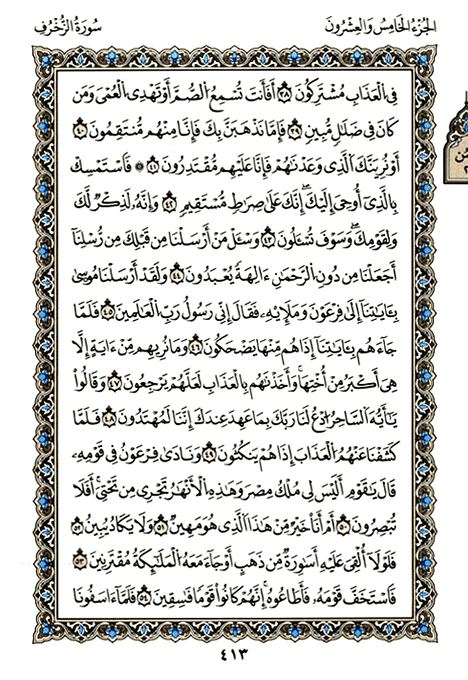 الجُزْءُ الخَامِسُ وَالعِشْرُونَ
سُورَةُ الزُّخْرُفِ
فِى الْعَذَابِ مُشْتَرِكُونَ ٣٨ أَفَأَنتَ تُسْمِعُ الصُّمَّ أَوْ تَهْدِى الْعُمْىَ وَمَن
كَانَ فِى ضَلَٰلٍ مُّبِينٍ ٣٩ فَإِمَّا نَذْهَبَنَّ بِكَ فَإِنَّا مِنْهُم مُّنتَقِمُونَ ٤٠
أَوْ نُرِيَنَّكَ الَّذِى وَعَدْنَٰهُمْ فَإِنَّا عَلَيْهِم مُّقْتَدِرُونَ ٤١ ۞ فَاسْتَمْسِكْ
بِالَّذِى أُوحِىَ إِلَيْكَ ۖ إِنَّكَ عَلَىٰ صِرَٰطٍ مُّسْتَقِيمٍ ٤٢ وَإِنَّهُ لَذِكْرٌ لَّكَ
وَلِقَوْمِكَ ۖ وَسَوْفَ تُسْـَٔلُونَ ٤٣ وَسْـَٔلْ مَنْ أَرْسَلْنَا مِن قَبْلِكَ مِن رُّسْلِنَا
أَجَعَلْنَا مِن دُونِ الرَّحْمَٰنِ ءَالِهَةً يُعْبَدُونَ ٤٤ وَلَقَدْ أَرْسَلْنَا مُوسَىٰ
بِـَٔايَٰتِنَا إِلَىٰ فِرْعَوْنَ وَمَلَإِيْهِۦ فَقَالَ إِنِّى رَسُولُ رَبِّ الْعَٰلَمِينَ ٤٥ فَلَمَّا
جَآءَهُم بِـَٔايَٰتِنَا إِذَا هُم مِّنْهَا يَضْحَكُونَ ٤٦ وَمَا نُرِيهِم مِّنْ ءَايَةٍ إِلَّا
هِىَ أَكْبَرُ مِنْ أُخْتِهَا ۖ وَأَخَذْنَٰهُم بِالْعَذَابِ لَعَلَّهُمْ يَرْجِعُونَ ٤٧ وَقَالُوا
يَٰٓأَيُّهَ السَّاحِرُ ادْعُ لَنَا رَبَّكَ بِمَا عَهِدَ عِندَكَ إِنَّنَا لَمُهْتَدُونَ ٤٨ فَلَمَّا
كَشَفْنَا عَنْهُمُ الْعَذَابَ إِذَا هُمْ يَنكُثُونَ ٤٩ وَنَادَىٰ فِرْعَوْنُ فِى قَوْمِهِۦ
قَالَ يَٰقَوْمِ أَلَيْسَ لِى مُلْكُ مِصْرَ وَهَٰذِهِ الْأَنْهَٰرُ تَجْرِى مِن تَحْتِىَ ۖ أَفَلَا
تُبْصِرُونَ ٥٠ أَمْ أَنَا خَيْرٌ مِّنْ هَٰذَا الَّذِى هُوَ مَهِينٌ ٥١ وَلَا يَكَادُ يُبِينُ ٥٢
فَلَوْلَا أُلْقِىَ عَلَيْهِ أَسَٰوِرَةٌ مِّن ذَهَبٍ أَوْ جَآءَ مَعَهُ الْمَلَٰٓئِكَةُ مُقْتَرِنِينَ ٥٣
فَاسْتَخَفَّ قَوْمَهُۥ فَأَطَاعُوهُ ۚ إِنَّهُمْ كَانُوا قَوْمًا فَٰسِقِينَ ٥٤ فَلَمَّآ ءَاسَفُونَا
٤١٣